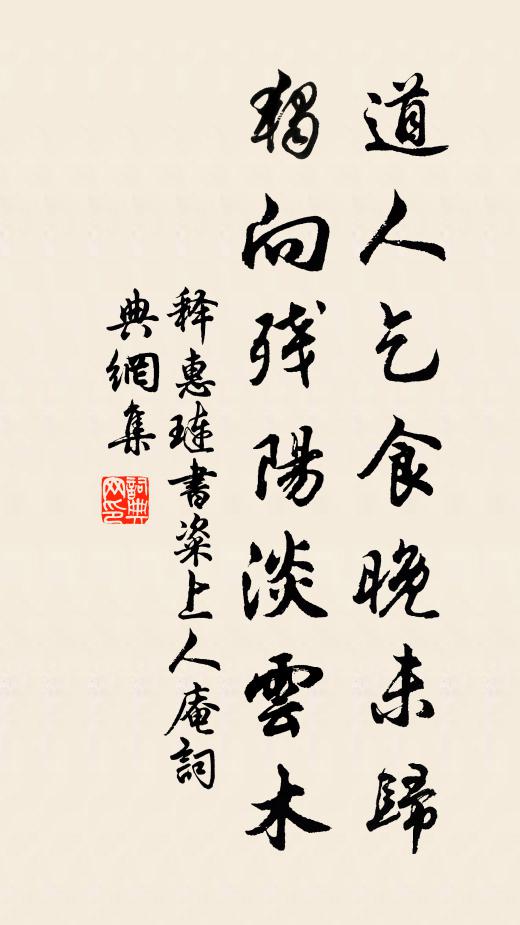 道人乞食晚未歸
獨向殘陽淡雲木
释惠璉書粢上人庵詞
典網集
詞典网印